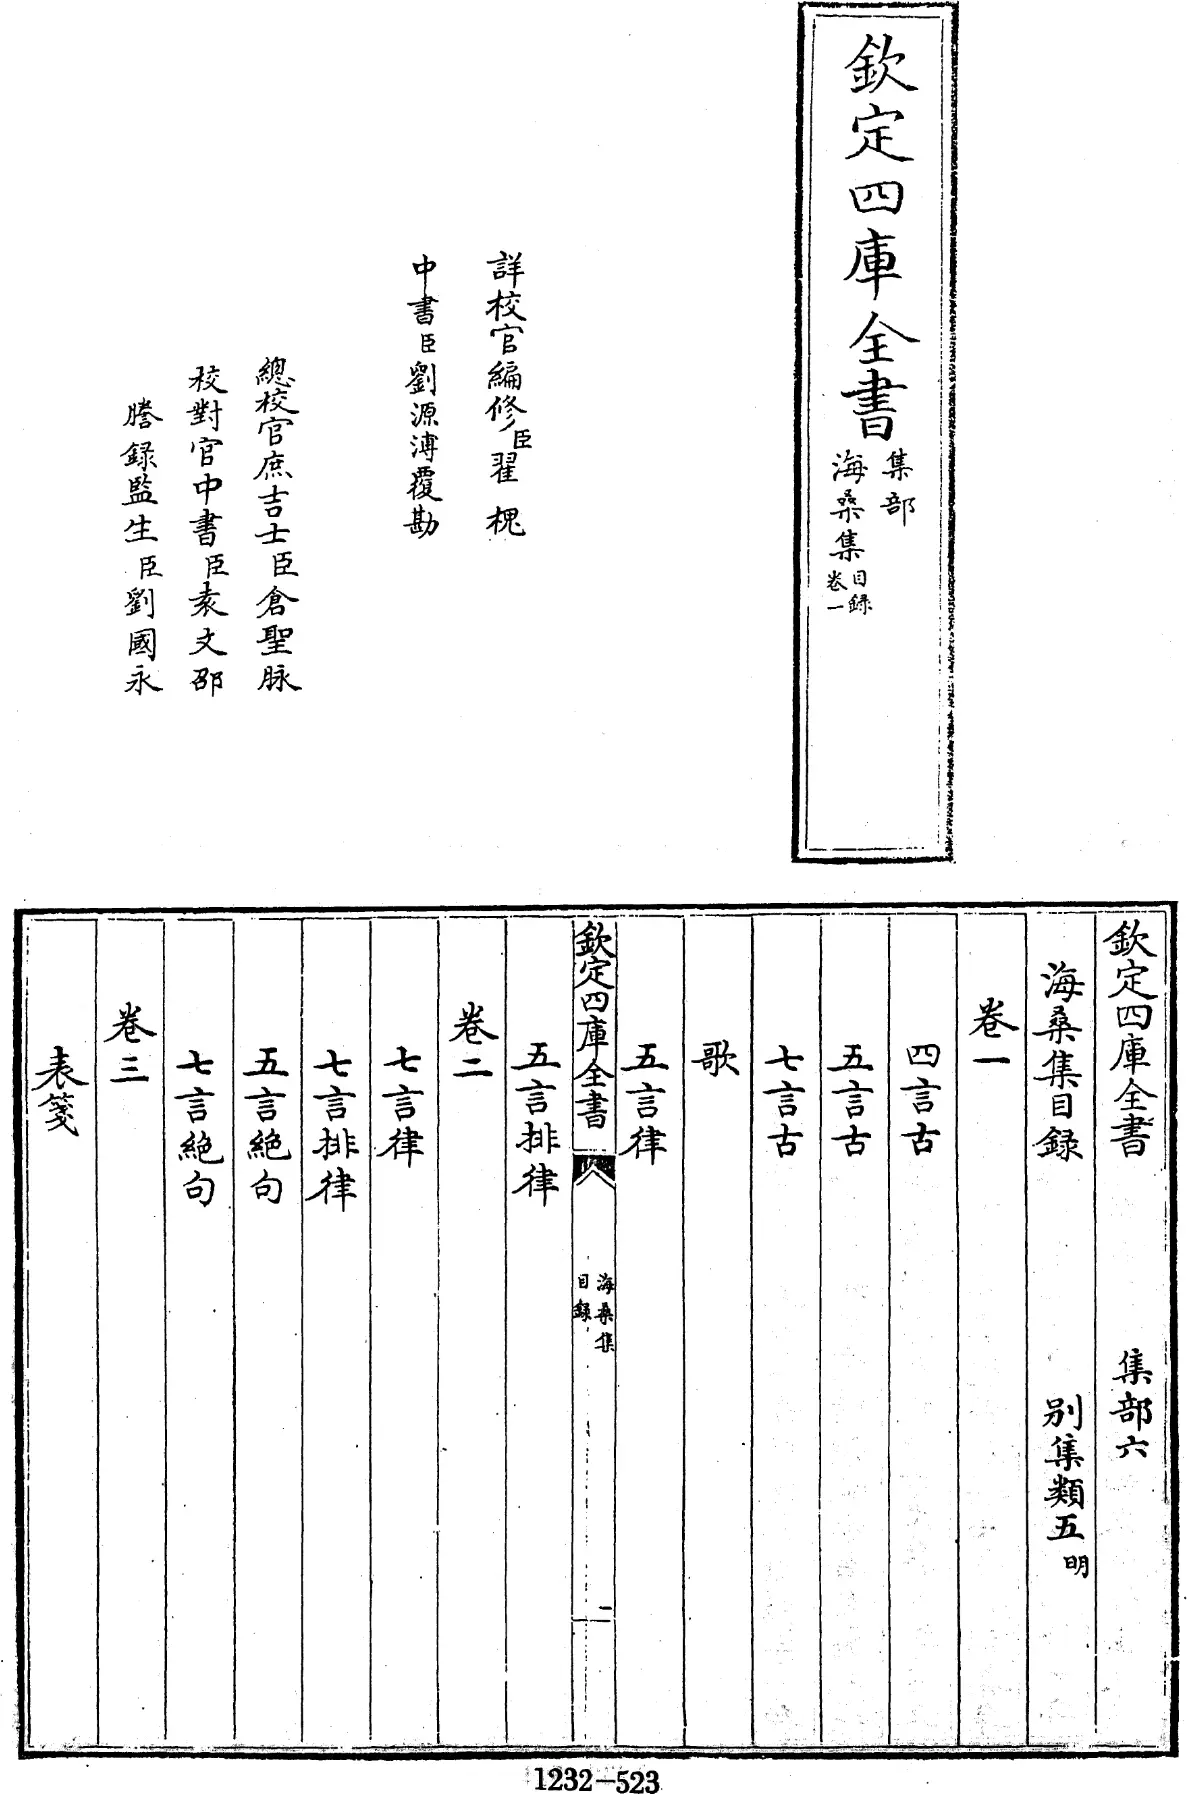 欽定四庫全書
集部
海桑集
目録
卷一
詳校官編修臣翟槐
中書臣劉源溥覆勘
總校官庶吉士臣倉聖脉
校對官中書臣袁文邵
謄録監生臣劉國永
欽定四庫全書 集部六
海桑集目録 别集類五 明
卷一
四言古
五言古
七言古
歌
五言律
欽定四庫全書
海桑集
目録
一
五言排律
卷二
七言律
七言排律
五言絶句
七言絶句
卷三
表箋
1232-523